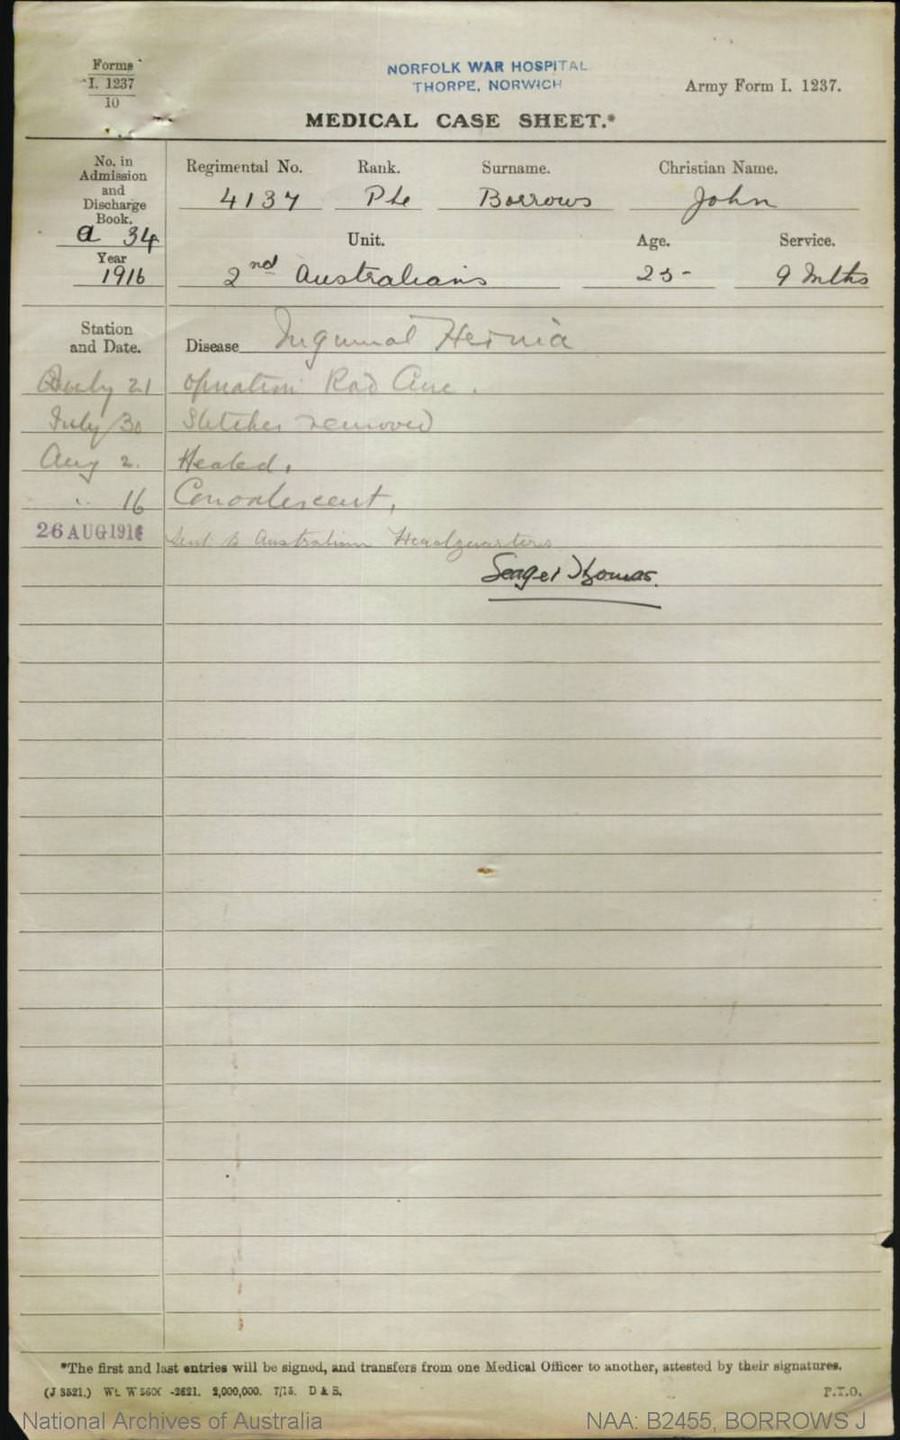 Forms
I. 1237
10
NORFOLK WAR HOSPITAL
THORPE, NORWICH
Army Form I. 1237.
MEDICAL CASE SHEET.*
No. in
Admission
and
Discharge
Book.
a 34
Year
1916
Regimental No. Rank. Surname. Christian Name.
4137 Pte Borrows John
Unit. Age. Service.
2nd Australians 25 - 9 Mths
Station
and Date.
Disease Inguinal Hernia
July 21 Operation Rad Cure.
July 30 Stitches removed
Aug 2. Healed.
" 16 Convalescent,
26 AUG 1916 Sent to Australian Headquarters
Thomas.
*The first and last entries will be signed, and transfers from one Medical Officer to another, attested by their signatures.
(J 3521.) Wt. -2621. 2,000,000. 7/15. D & S.
P.T.O.
National Archives of Australia
NAA: B2455, BORROWS J